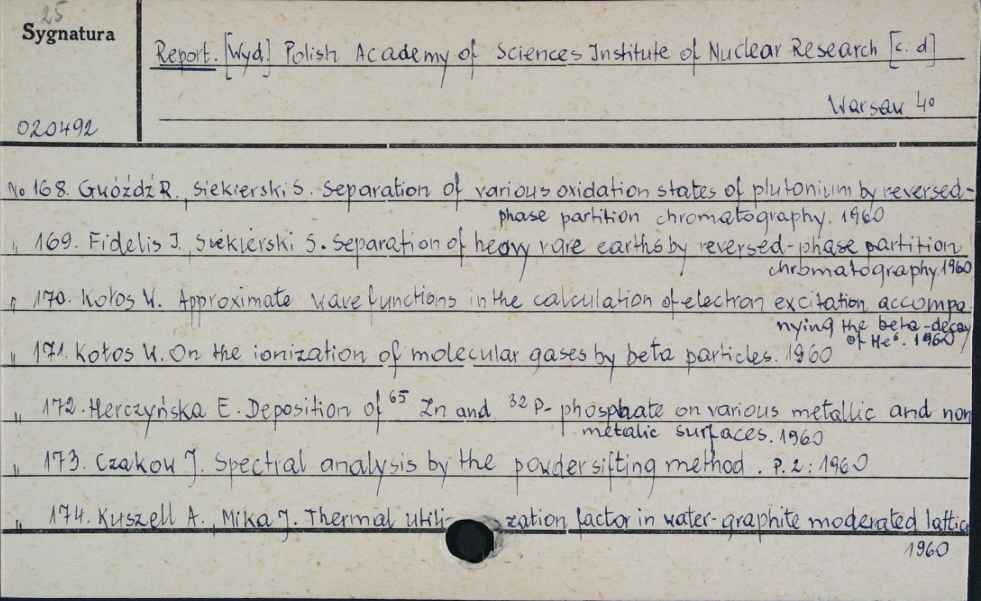 25
Sygnatura
Report. [Wyd] Polish Academy of Sciences Institute of Nuclear Research [c. d]
Warsaw 4°
020492
No 168. Gwóźdź R., Siekierski S. Separation of various oxidation states of plutonium by reversed-
phase partition chromatography. 1960
" 169. Fidelis J., Siekierski S. Separation of heavy rare earths by reversed-phase partition
chromatography. 1960
" 170. Kołos W. Approximate wave functions in the calculation of electron excitation accompa-
nying the beta-decay
of He⁶. 1960
" 171. Kołos W. On the ionization of molecular gases by beta particles. 1960
" 172. Herczyńska E. Deposition of ⁶⁵Zn and ³²P-phosphate on various metallic and non
metalic surfaces. 1960
" 173. Czakow J. Spectral analysis by the powder sifting method. P. 2: 1960
" 174. Kuszell A., Mika J. Thermal utilization factor in water-graphite moderated lattice
1960